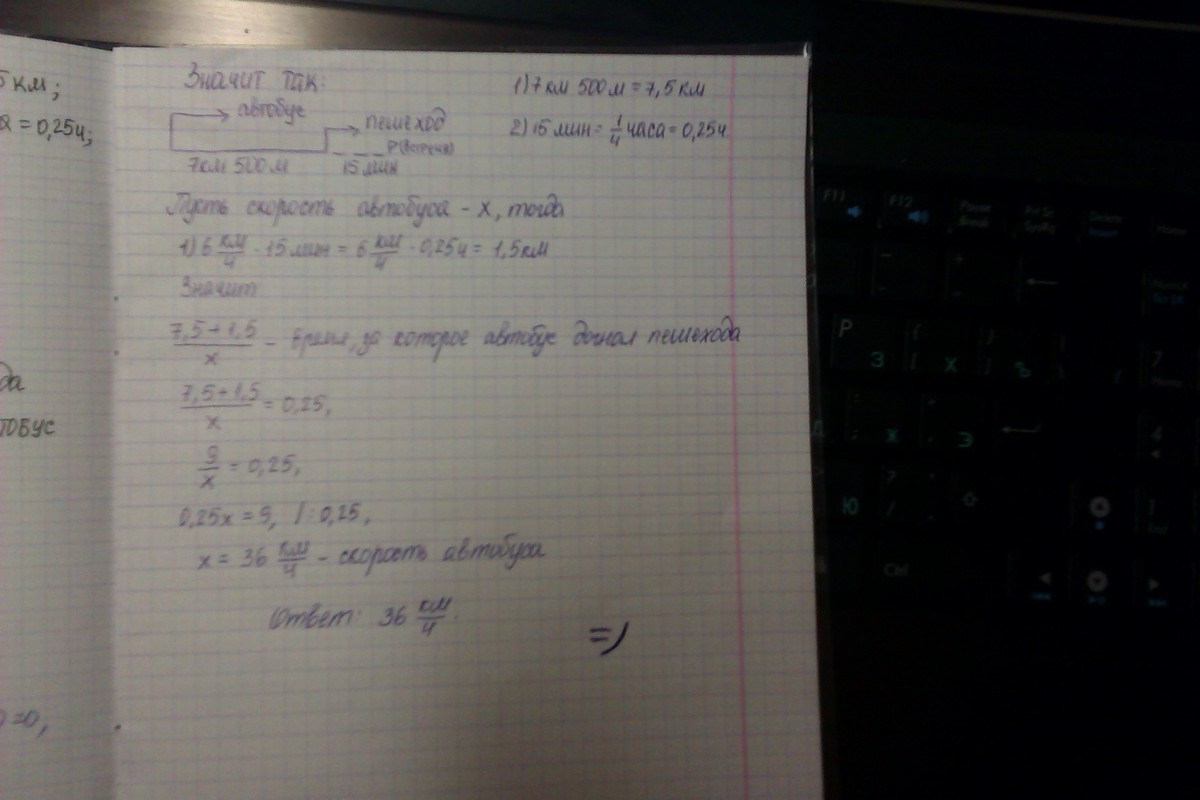 5 км;
= 0,25ч;
да
тобус
=0,
Значит так:
автобус
пешеход
P(встречи)
7км 500м 15 мин
1) 7 км 500 м = 7,5 км
2) 15 мин = 1/4 часа = 0,25ч
Пусть скорость автобуса - x, тогда
1) 6 км/ч · 15 мин = 6 км/ч · 0,25ч = 1,5 км
Значит
7,5+1,5/x - время, за которое автобус догнал пешехода
7,5+1,5/x = 0,25,
9/x = 0,25,
0,25x = 9, /: 0,25,
x = 36 км/ч - скорость автобуса
Ответ: 36 км/ч.
=)
F11
F12
Pause
Break
Prt Sc
SysRq
Delete
Insert
Home
Р
З
Х
Ъ
7
Home
Ж
Э
4
Ю
?
/
1
End
Ctrl